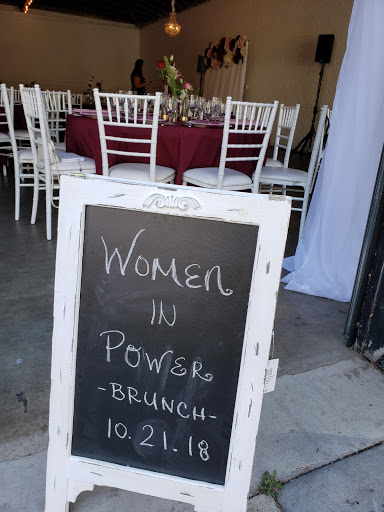 WOMEN
IN
POWER
-BRUNCH-
10.21.18